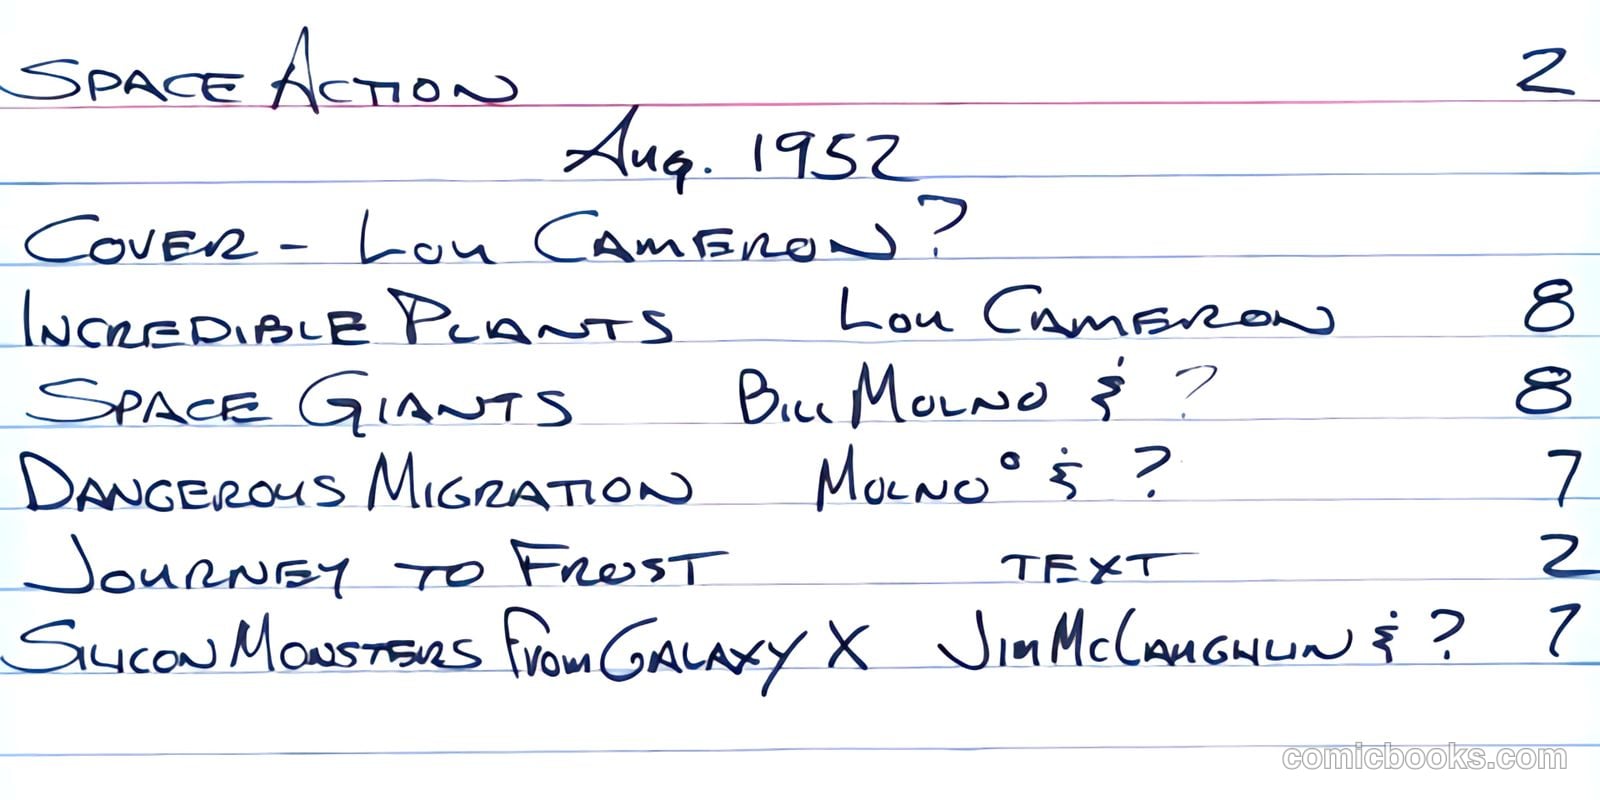 SPACE ACTION 2
Aug. 1952
COVER - LOU CAMERON?
INCREDIBLE PLANTS LOU CAMERON 8
SPACE GIANTS BILL MOLNO & ? 8
DANGEROUS MIGRATION MOLNO° & ? 7
JOURNEY TO FROST TEXT 2
SILICON MONSTERS FROM GALAXY X JIM MCLAUGHLIN & ? 7
comicbooks.com